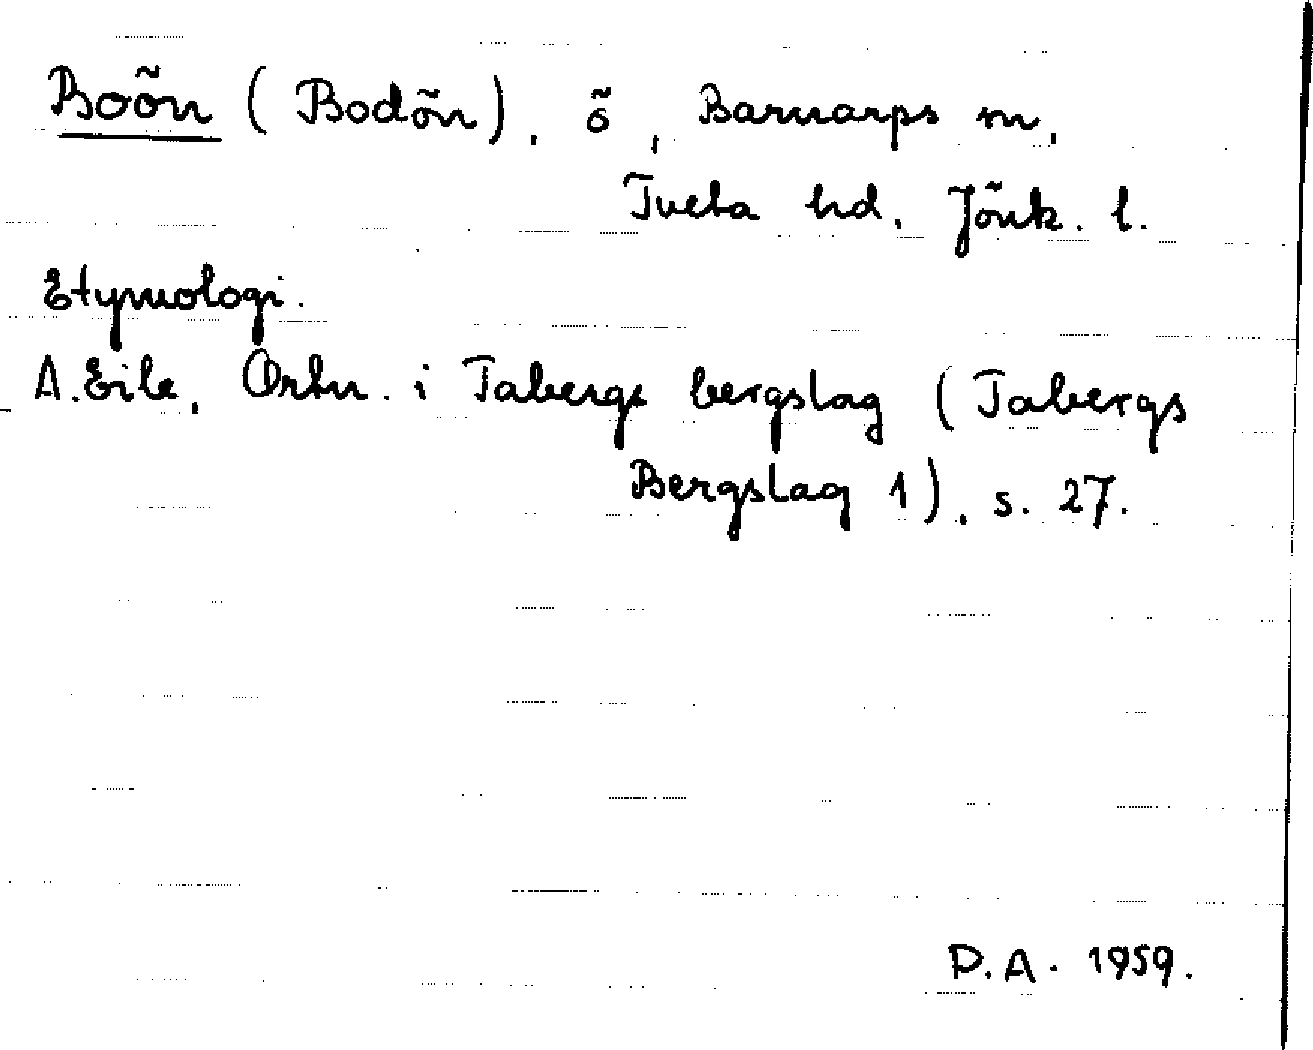 Boön (Bodön), ö, Barnarps sn,
Tveta hd, Jönk. l.
Etymologi.
A. Eile, Ortn. i Tabergs bergslag (Tabergs
Bergslag 1), s. 27.
P.A. 1959.